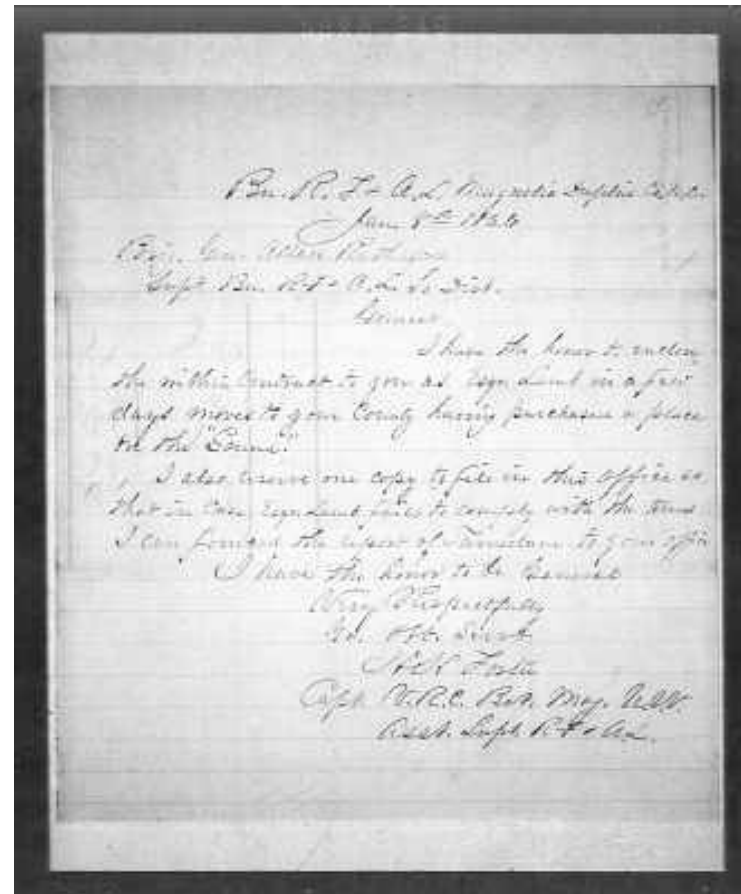 Bu. R. F & A. L. Magnolia Duplin Co N.C.
Jan 8th 1866
Gen. Allan
Supt Bu. R. F & A. L. So Dist.
General
I have the honor to enclose
the within Contract to you as in a few
days moves to your County having purchased a place
on the
I also reserve one copy to file in this office so
that in case fails to comply with the terms
I can forward the report of to your office
I have the honor to be General
Very Respectfully
Yr. Obt. Servt
Capt V.R.C. Bvt. Maj. U.S.V.
Asst. Supt R. F & A L.